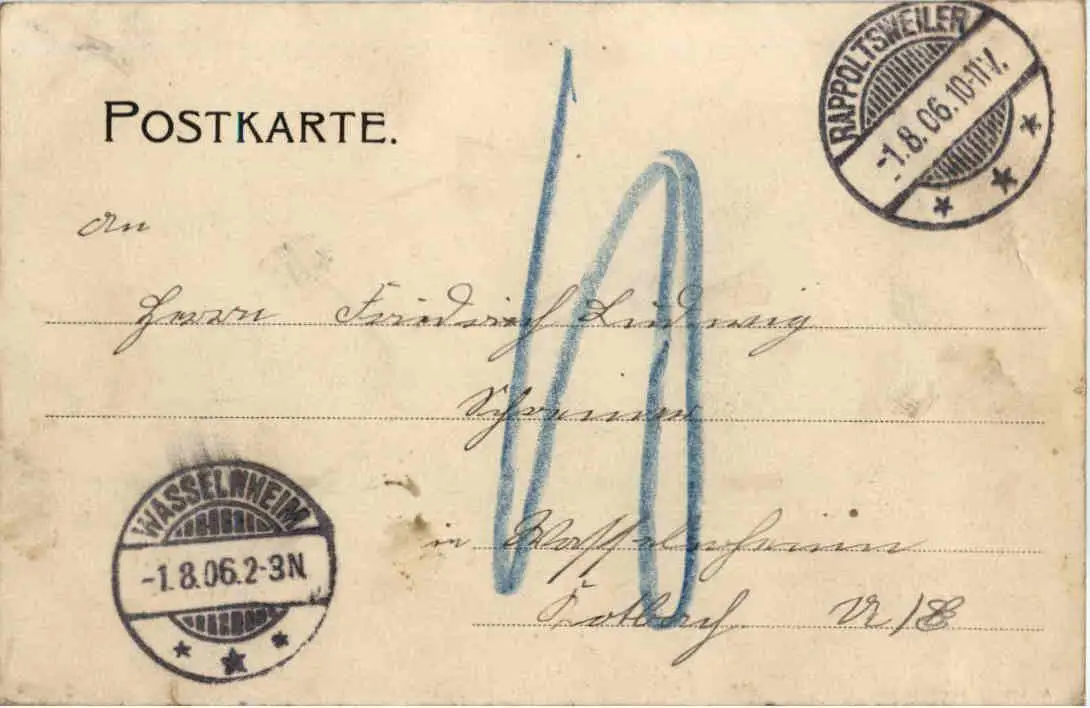 POSTKARTE.
RAPPOLTSWEILER
-1.8.06.10-11V.
An
Herrn Friedrich Ludwig
Schreiner
in Wasselnheim
U/E
WASSELNHEIM
-1.8.06.2-3N
10